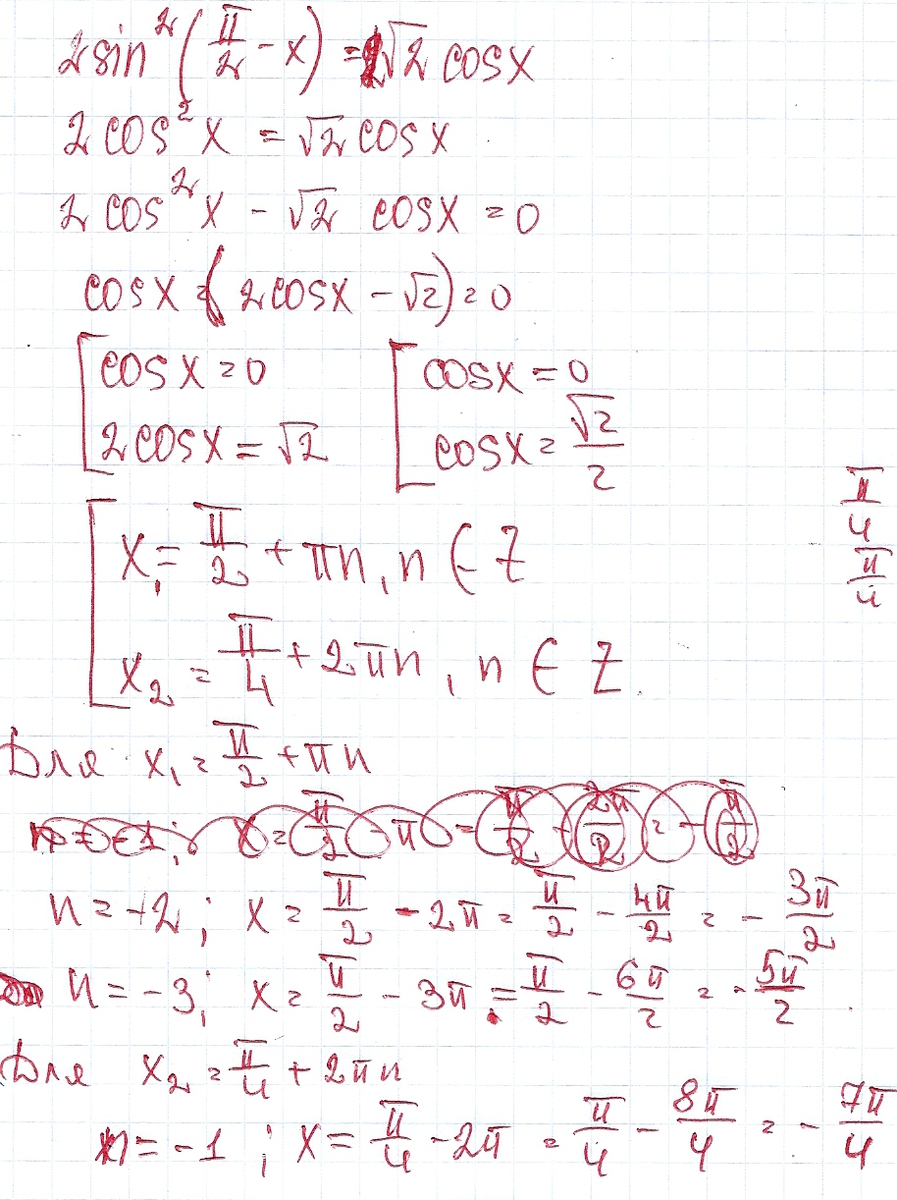 2sin²(π/2 - x) = √2 cosx
2cos²x = √2 cosx
2cos²x - √2 cosx = 0
cosx (2cosx - √2) = 0
[cosx = 0 [cosx = 0
[2cosx = √2 [cosx = √2/2
[x₁ = π/2 + πn, n ∈ Z
[x₂ = π/4 + 2πn, n ∈ Z.
π/4
π/4
Для x₁ = π/2 + πn
n = -1; x = π/2 - π = π/2 - 2π/2 = -π/2
n = -2; x = π/2 - 2π = π/2 - 4π/2 = -3π/2
n = -3; x = π/2 - 3π = π/2 - 6π/2 = -5π/2.
Для x₂ = π/4 + 2πn
n = -1; x = π/4 - 2π = π/4 - 8π/4 = -7π/4